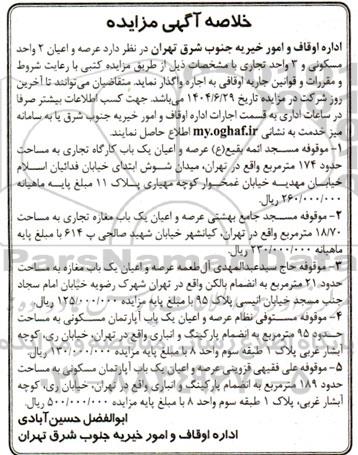 خلاصه آگهی مزایده
اداره اوقاف و امور خیریه جنوب شرق تهران در نظر دارد عرصه و اعیان ۲ واحد
مسکونی و ۳ واحد تجاری با مشخصات ذیل از طریق مزایده کتبی با رعایت شروط
و مقررات و قوانین جاریه اوقافی به اجاره واگذار نماید. متقاضیان می‌توانند تا آخرین
روز شرکت در مزایده تاریخ ۱۴۰۴/۶/۲۹ می‌باشد. جهت کسب اطلاعات بیشتر صرفا
در ساعات اداری به قسمت اجارات اداره اوقاف و امور خیریه جنوب شرق یا به سامانه
میز خدمت به نشانی my.oghaf.ir اطلاع حاصل نمایند.
۱- موقوفه مسجد ائمه بقیع(ع) عرصه و اعیان یک باب کارگاه تجاری به مساحت
حدود ۱۷۴ مترمربع واقع در تهران، میدان شوش ابتدای خیابان فدائیان اسلام
خیابان مهدیه خیابان غمخوار کوچه مهیاری پلاک ۱۱ مبلغ پایه ماهیانه
۲۶۰/۰۰۰/۰۰۰ ریال.
۲- موقوفه مسجد جامع بهشتی عرصه و اعیان یک باب مغازه تجاری به مساحت
۱۸/۷۰ مترمربع واقع در تهران، کیانشهر خیابان شهید صالحی پ ۶۱۴ با مبلغ پایه
ماهیانه ۲۳۰/۰۰۰/۰۰۰ ریال.
۳- موقوفه حاج سیدعبدالمهدی آل طعمه عرصه و اعیان یک باب مغازه به مساحت
حدود ۲۱ مترمربع به انضمام بالکن واقع در تهران شهرک رضویه خیابان امام سجاد
جنب مسجد خیابان انیسی پلاک ۹۵ با مبلغ پایه مزایده ۱۲۵/۰۰۰/۰۰۰ ریال.
۴- موقوفه مستوفی نظام عرصه و اعیان یک باب آپارتمان مسکونی به مساحت
حدود ۹۵ مترمربع به انضمام پارکینگ و انباری واقع در تهران، خیابان ری، کوچه
آبشار غربی، پلاک ۱ طبقه سوم واحد ۸ با مبلغ پایه مزایده ۱۳۰/۰۰۰/۰۰۰ ریال.
۵- موقوفه علی فقیهی قزوینی عرصه و اعیان یک باب آپارتمان مسکونی به مساحت
حدود ۱۸۹ مترمربع به انضمام پارکینگ و انباری واقع در تهران، خیابان ری، کوچه
آبشار غربی، پلاک ۱ طبقه سوم واحد ۸ با مبلغ پایه مزایده ۵۰۰/۰۰۰/۰۰۰ ریال.
ابوالفضل حسین‌آبادی
اداره اوقاف و امور خیریه جنوب شرق تهران